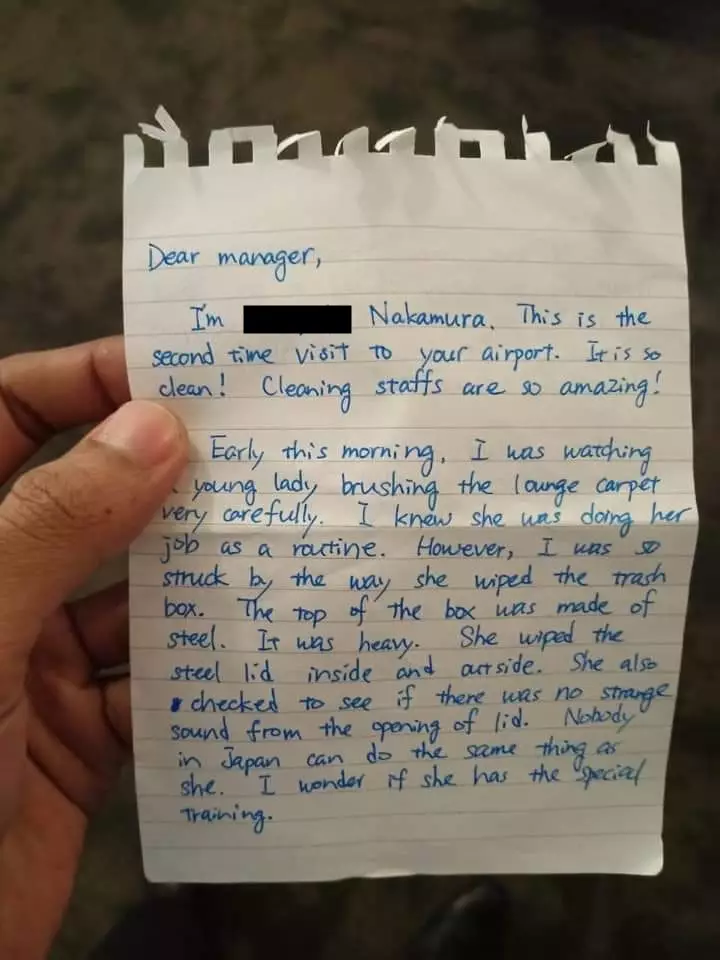 Dear manager,
I'm Nakamura. This is the
second time visit to your airport. It is so
clean! Cleaning staffs are so amazing!
Early this morning, I was watching
young lady brushing the lounge carpet
very carefully. I knew she was doing her
job as a routine. However, I was so
struck by the way she wiped the trash
box. The top of the box was made of
steel. It was heavy. She wiped the
steel lid inside and outside. She also
checked to see if there was no strange
sound from the opening of lid. Nobody
in Japan can do the same thing as
she. I wonder if she has the special
training.